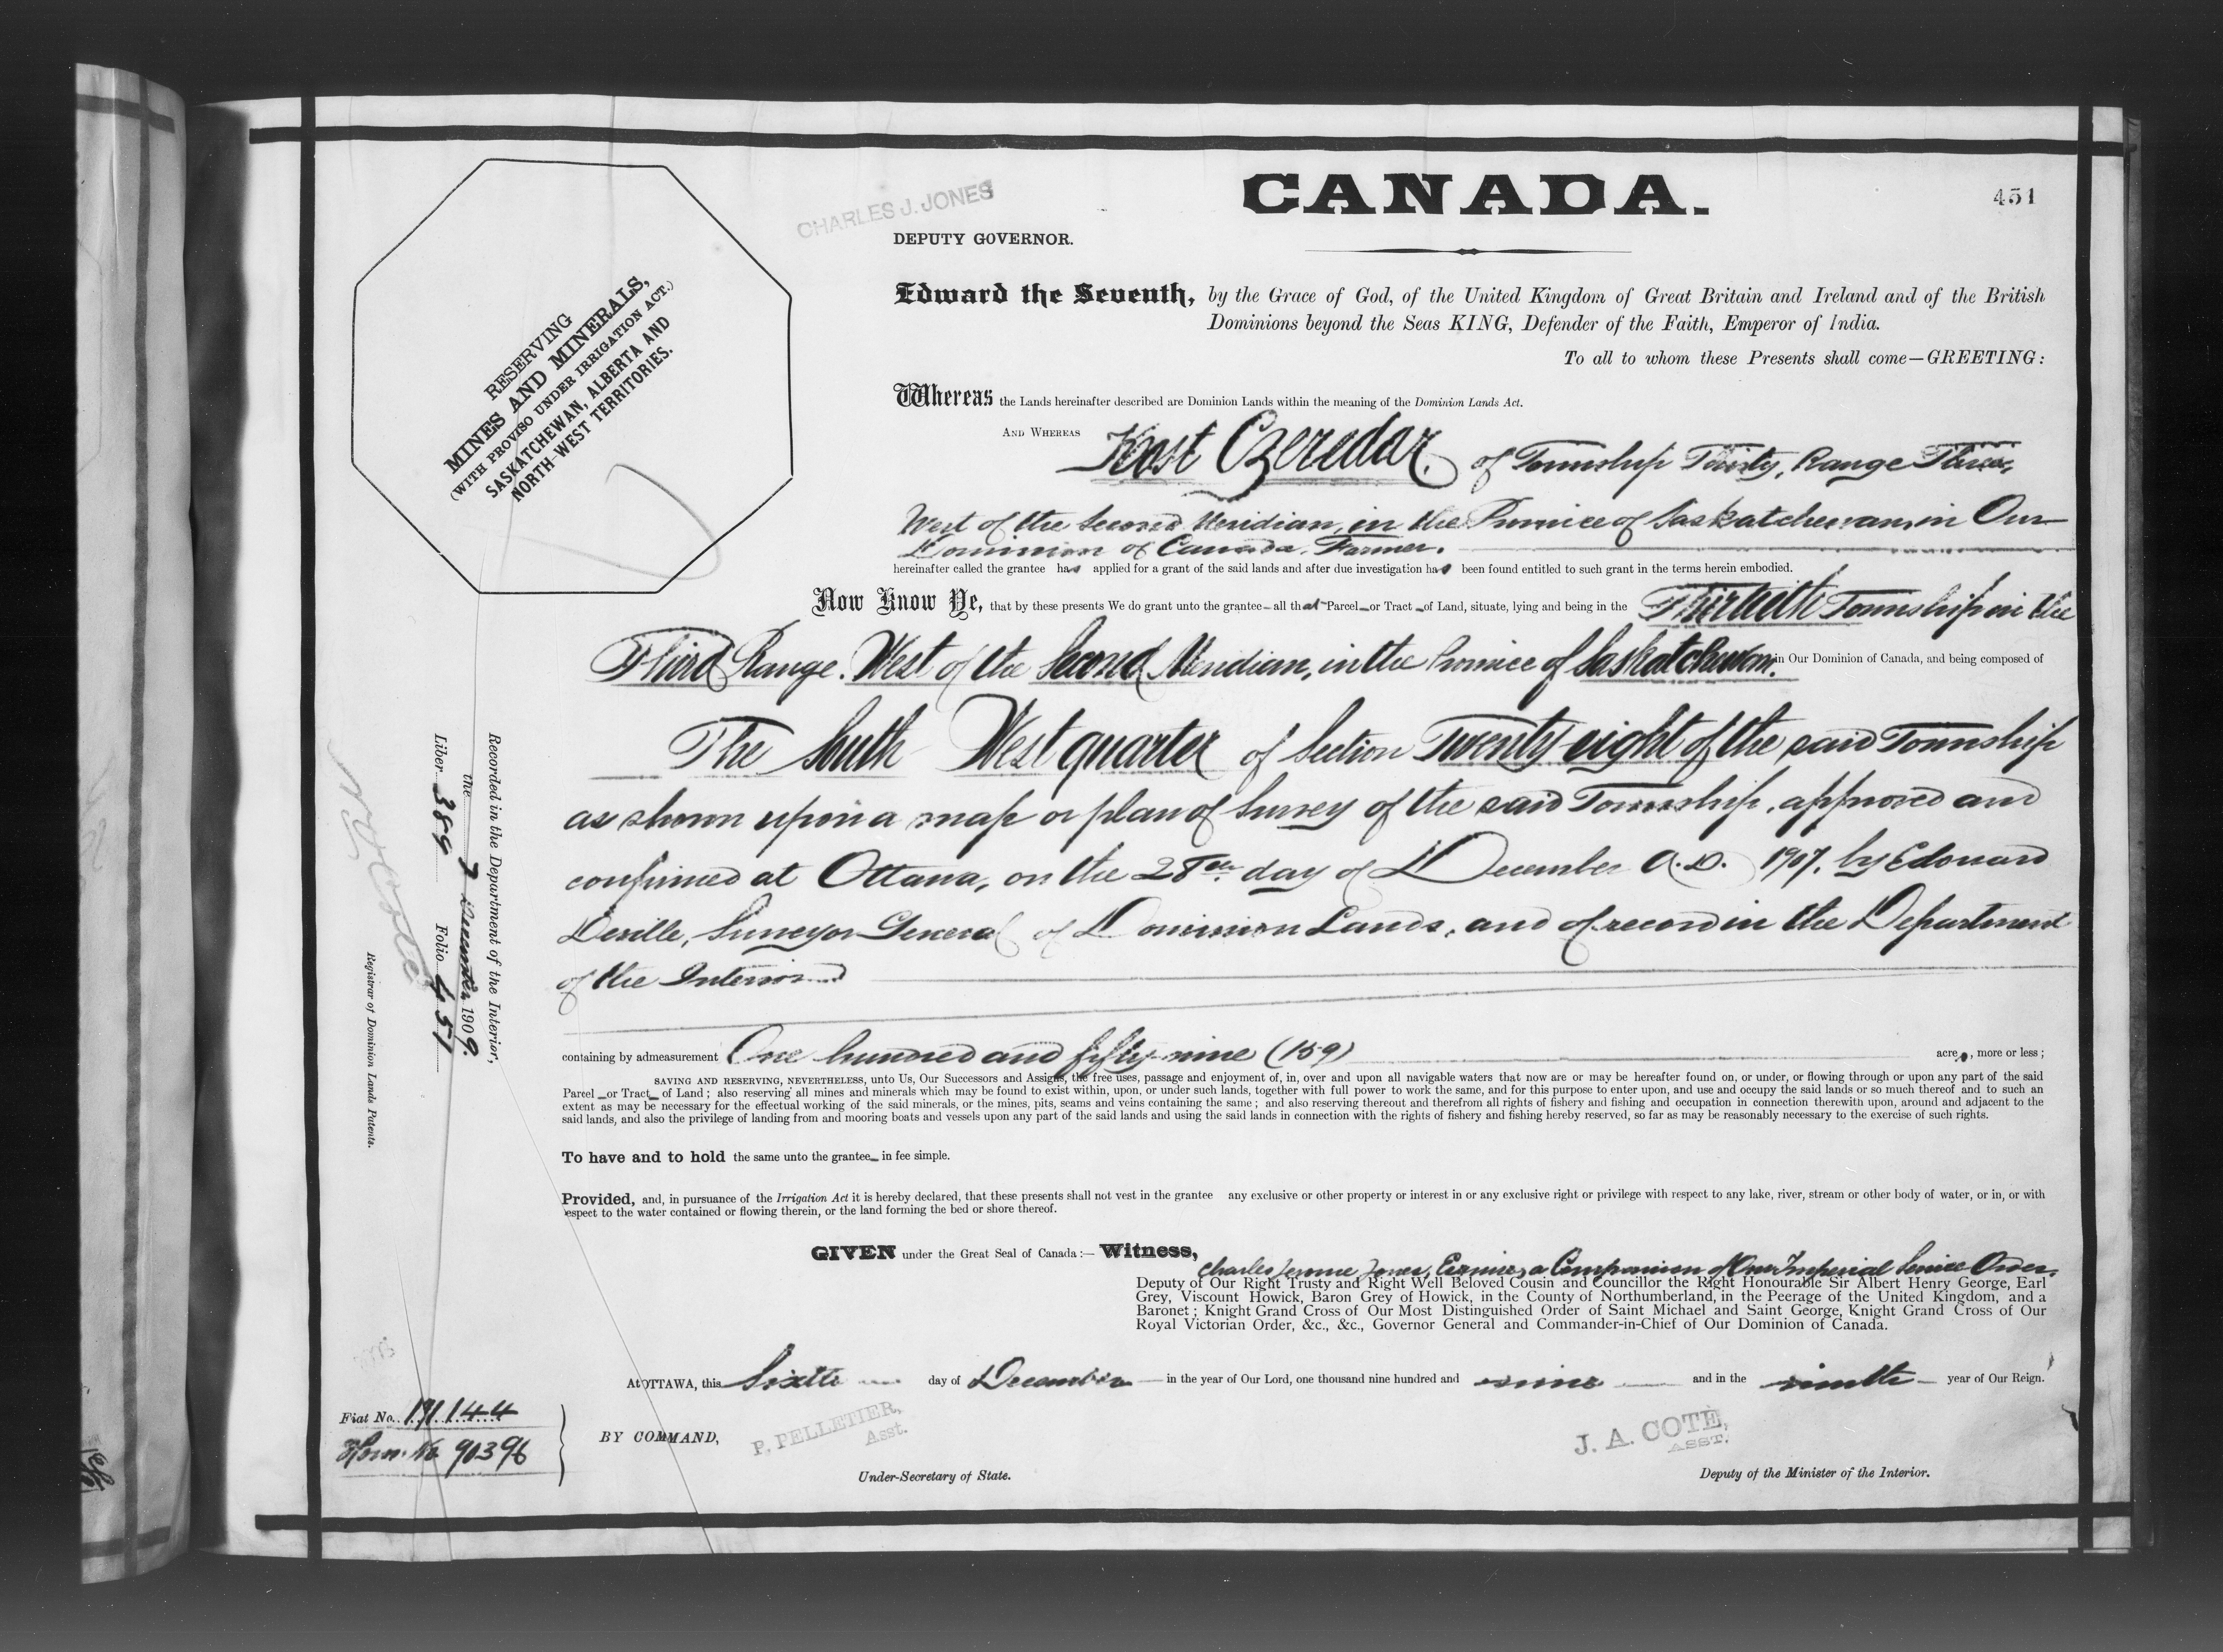 CHARLES J. JONES
CANADA.
451
DEPUTY GOVERNOR.
RESERVING
MINES AND MINERALS,
(WITH PROVISO UNDER IRRIGATION ACT.)
SASKATCHEWAN, ALBERTA AND
NORTH-WEST TERRITORIES.
Edward the Seventh, by the Grace of God, of the United Kingdom of Great Britain and Ireland and of the British
Dominions beyond the Seas KING, Defender of the Faith, Emperor of India.
To all to whom these Presents shall come—GREETING:
Whereas the Lands hereinafter described are Dominion Lands within the meaning of the Dominion Lands Act.
AND WHEREAS Kost Czeredar, of Township Thirty, Range Three,
West of the Second Meridian, in the Province of Saskatchewan, in Our
Dominion of Canada, Farmer.
hereinafter called the grantee has applied for a grant of the said lands and after due investigation has been found entitled to such grant in the terms herein embodied.
Now Know Ye, that by these presents We do grant unto the grantee—all that Parcel or Tract of Land, situate, lying and being in the Thirtieth Township in the
Third Range, West of the Second Meridian, in the Province of Saskatchewan, in Our Dominion of Canada, and being composed of
The South West quarter of Section Twenty eight of the said Township
as shown upon a map or plan of Survey of the said Township, approved and
confirmed at Ottawa, on the 28th day of December A.D. 1907, by Edouard
Deville, Surveyor General of Dominion Lands, and of record in the Department
of the Interior.
containing by admeasurement One hundred and fifty-nine (159) acres, more or less;
SAVING AND RESERVING, NEVERTHELESS, unto Us, Our Successors and Assigns, the free uses, passage and enjoyment of, in, over and upon all navigable waters that now are or may be hereafter found on, or under, or flowing through or upon any part of the said
Parcel or Tract of Land; also reserving all mines and minerals which may be found to exist within, upon, or under such lands, together with full power to work the same, and for this purpose to enter upon, and use and occupy the said lands or so much thereof and to such an
extent as may be necessary for the effectual working of the said minerals, or the mines, pits, seams and veins containing the same; and also reserving thereout and therefrom all rights of fishery and fishing and occupation in connection therewith upon, around and adjacent to the
said lands, and also the privilege of landing from and mooring boats and vessels upon any part of the said lands and using the said lands in connection with the rights of fishery and fishing hereby reserved, so far as may be reasonably necessary to the exercise of such rights.
To have and to hold the same unto the grantee in fee simple.
Provided, and, in pursuance of the Irrigation Act it is hereby declared, that these presents shall not vest in the grantee any exclusive or other property or interest in or any exclusive right or privilege with respect to any lake, river, stream or other body of water, or in, or with
respect to the water contained or flowing therein, or the land forming the bed or shore thereof.
GIVEN under the Great Seal of Canada:— Witness,
Charles Jerome Jones, Esquire, a Companion of Our Imperial Service Order,
Deputy of Our Right Trusty and Right Well Beloved Cousin and Councillor the Right Honourable Sir Albert Henry George, Earl
Grey, Viscount Howick, Baron Grey of Howick, in the County of Northumberland, in the Peerage of the United Kingdom, and a
Baronet; Knight Grand Cross of Our Most Distinguished Order of Saint Michael and Saint George, Knight Grand Cross of Our
Royal Victorian Order, &c., &c., Governor General and Commander-in-Chief of Our Dominion of Canada.
At OTTAWA, this Sixth day of December in the year of Our Lord, one thousand nine hundred and nine and in the ninth year of Our Reign.
BY COMMAND,
P. PELLETIER,
Asst.
Under-Secretary of State.
J. A. COTÉ,
ASST.
Deputy of the Minister of the Interior.
Recorded in the Department of the Interior,
the 7 December 1909.
Liber 389 Folio 451
Registrar of Dominion Lands Patents.
Fiat No. 191144
Hom. No 90396